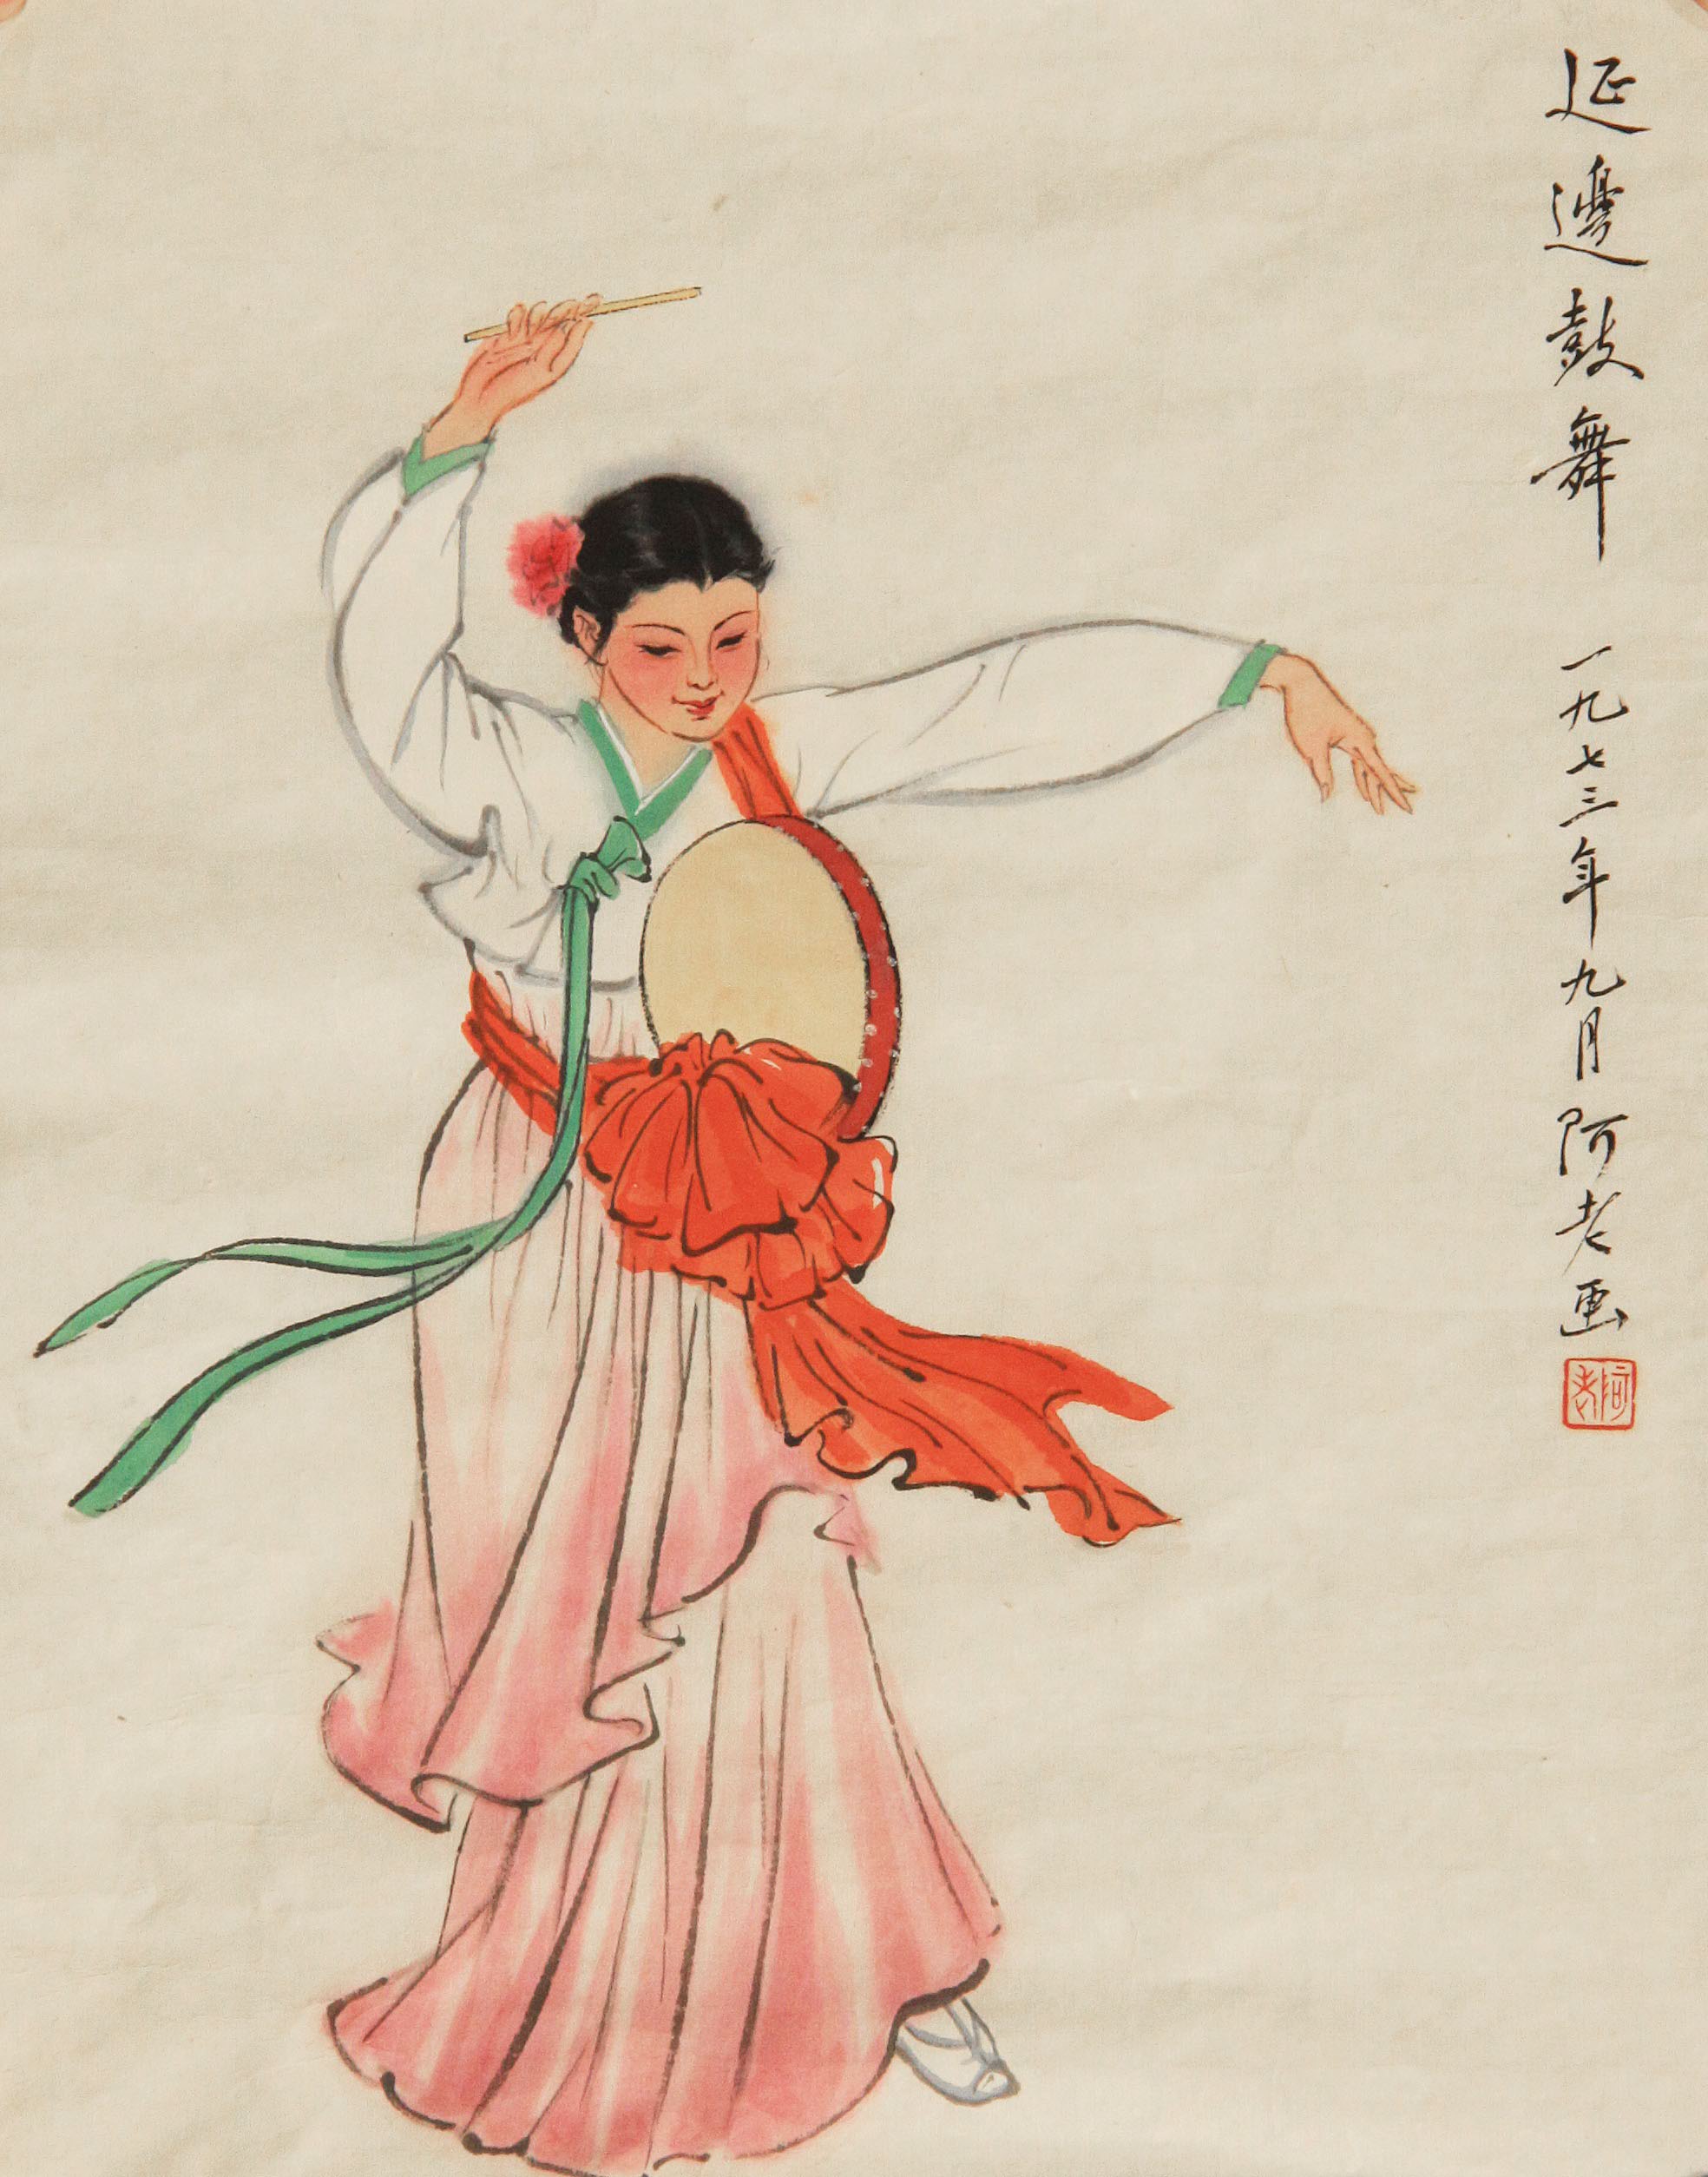 延邊鼓舞 一九七三年九月 阿老画
阿老